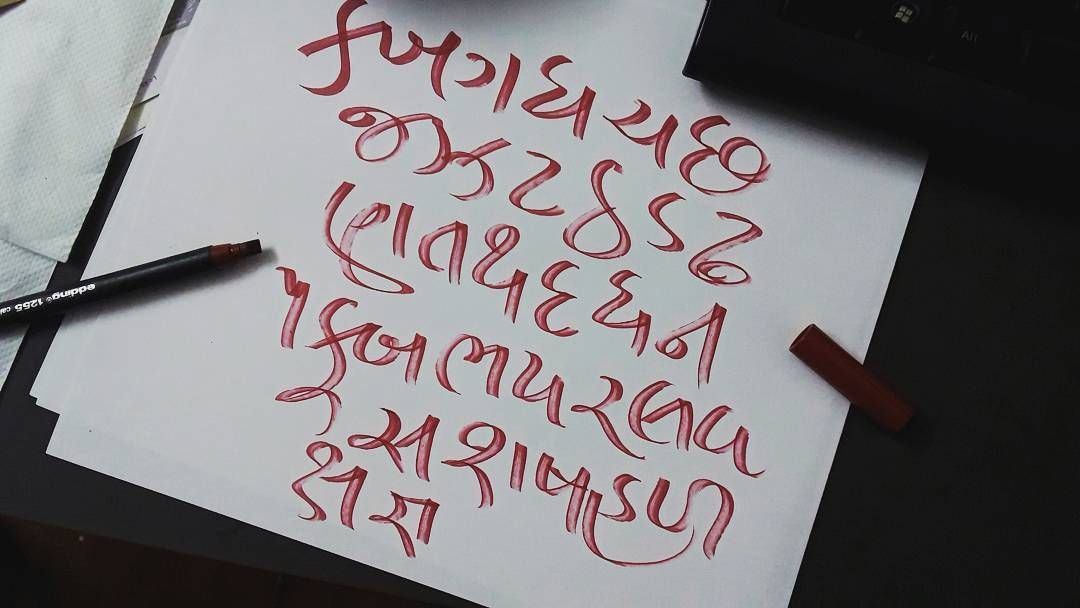 ક ખ ગ ઘ ચ છ
જ ઝ ટ ઠ ડ ઢ
ણ ત થ દ ધ ન
પ ફ બ ભ ય ર લ વ
સ શ ષ હ ળ
ક્ષ જ્ઞ
edding 1255
Alt